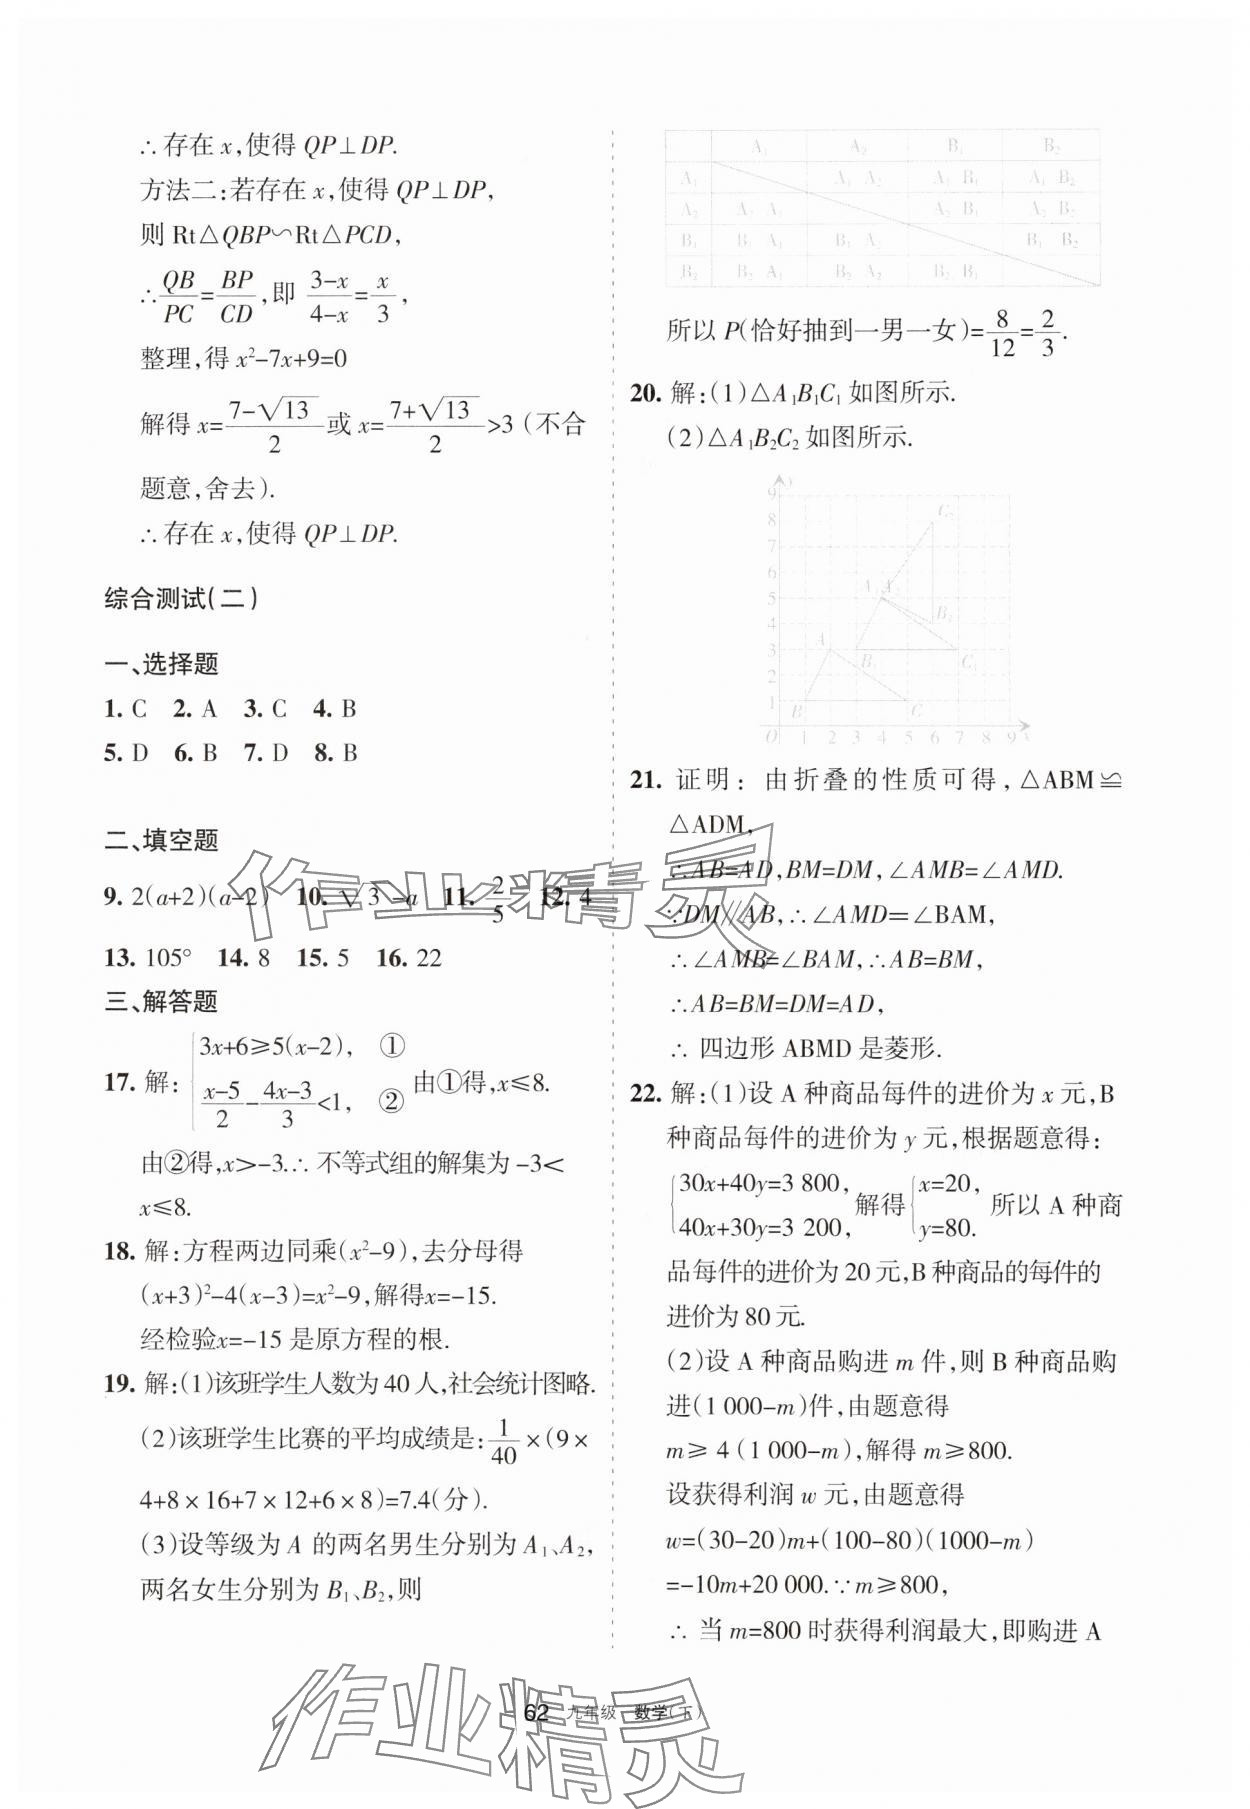 ∴存在 x,使得 QP⊥DP.
方法二:若存在 x,使得 QP⊥DP,
则 Rt△QBP∽Rt△PCD,
∴QB/PC=BP/CD,即 3-x/4-x=x/3,
整理,得 x²-7x+9=0
解得 x=7-√13/2或 x=7+√13/2>3 (不合
题意,舍去).
∴存在 x,使得 QP⊥DP.
综合测试(二)
一、选择题
1. C 2. A 3. C 4. B
5. D 6. B 7. D 8. B
二、填空题
9. 2(a+2)(a-2) 10. √3-a 11. 2/5 12. 4
13. 105° 14. 8 15. 5 16. 22
三、解答题
17. 解: {3x+6≥5(x-2), ① x-5/2-4x-3/3<1, ② 由①得,x≤8.
由②得,x>-3.∴ 不等式组的解集为 -3<
x≤8.
18. 解:方程两边同乘(x²-9),去分母得
(x+3)²-4(x-3)=x²-9,解得x=-15.
经检验x=-15 是原方程的根.
19. 解:(1)该班学生人数为 40 人,社会统计图略.
(2)该班学生比赛的平均成绩是:1/40×(9×
4+8×16+7×12+6×8)=7.4(分).
(3)设等级为 A 的两名男生分别为 A₁、A₂,
两名女生分别为 B₁、B₂,则
A₁ A₂ B₁ B₂
A₁ A₁ A₂ A₁ B₁ A₁ B₂
A₂ A₂ A₁ A₂ B₁ A₂ B₂
B₁ B₁ A₁ B₁ A₂ B₁ B₂
B₂ B₂ A₁ B₂ A₂ B₂ B₁
所以 P(恰好抽到一男一女)=8/12=2/3.
20. 解:(1)△A₁B₁C₁ 如图所示.
(2)△A₁B₂C₂ 如图所示.
y
9
8 C₂
7
6
5 A₁ A₂
4 B₂
3 A B₁ C₁
2
1 B C
O 1 2 3 4 5 6 7 8 9 x
21. 证明: 由折叠的性质可得,△ABM≌
△ADM,
∴AB=AD,BM=DM,∠AMB=∠AMD.
∵DM∥AB,∴∠AMD=∠BAM,
∴∠AMB=∠BAM,∴AB=BM,
∴AB=BM=DM=AD,
∴ 四边形 ABMD 是菱形.
22. 解:(1)设 A 种商品每件的进价为 x 元,B
种商品每件的进价为 y 元,根据题意得:
{30x+40y=3 800, 40x+30y=3 200, 解得{x=20, y=80. 所以 A 种商
品每件的进价为 20 元,B 种商品的每件的
进价为 80 元.
(2)设 A 种商品购进 m 件,则 B 种商品购
进(1 000-m)件,由题意得
m≥ 4 (1 000-m),解得 m≥800.
设获得利润 w 元,由题意得
w=(30-20)m+(100-80)(1000-m)
=-10m+20 000.∵m≥800,
∴ 当 m=800 时获得利润最大,即购进 A
作业精灵
62 九年级 数学(下)
作业精灵